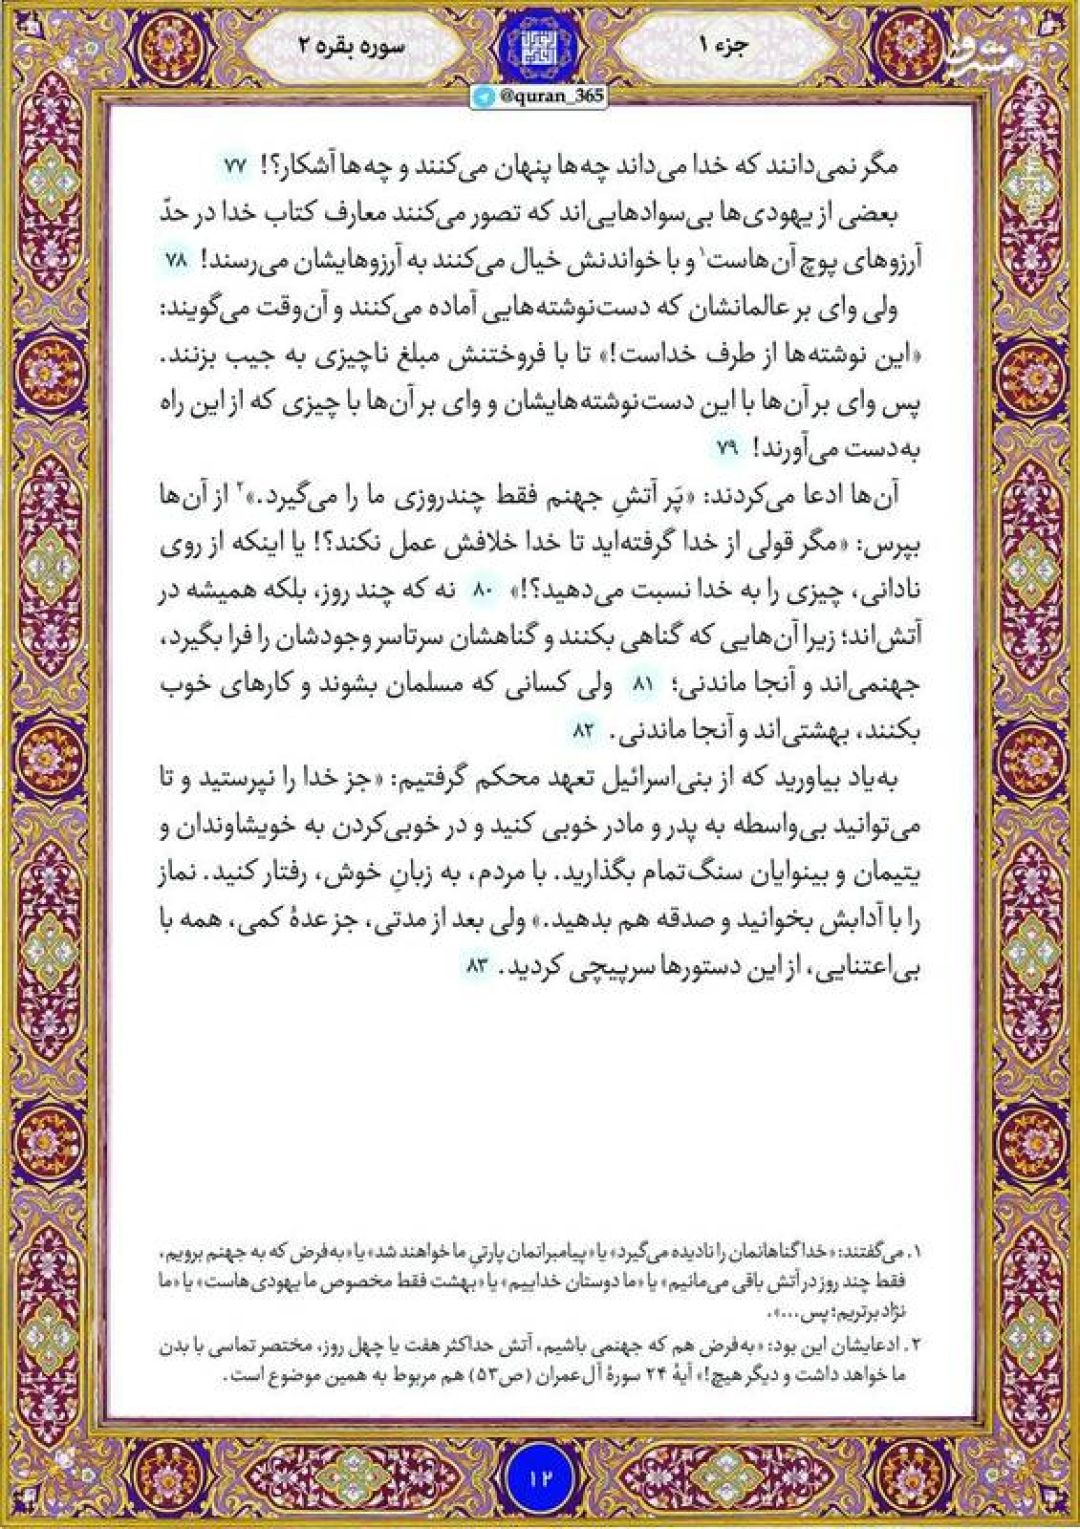 جزء ۱
سوره بقره ۲
مشرق
@quran_365
مگر نمی‌دانند که خدا می‌داند چه‌ها پنهان می‌کنند و چه‌ها آشکار؟! ۷۷
بعضی از یهودی‌ها بی‌سوادهایی‌اند که تصور می‌کنند معارف کتاب خدا در حدّ
آرزوهای پوچ آن‌هاست۱ و با خواندنش خیال می‌کنند به آرزوهایشان می‌رسند! ۷۸
ولی وای بر عالمانشان که دست‌نوشته‌هایی آماده می‌کنند و آن‌وقت می‌گویند:
«این نوشته‌ها از طرف خداست!» تا با فروختنش مبلغ ناچیزی به جیب بزنند.
پس وای بر آن‌ها با این دست‌نوشته‌هایشان و وای بر آن‌ها با چیزی که از این راه
به‌دست می‌آورند! ۷۹
آن‌ها ادعا می‌کردند: «پَر آتشِ جهنم فقط چندروزی ما را می‌گیرد.»۲ از آن‌ها
بپرس: «مگر قولی از خدا گرفته‌اید تا خدا خلافش عمل نکند؟! یا اینکه از روی
نادانی، چیزی را به خدا نسبت می‌دهید؟!» ۸۰ نه که چند روز، بلکه همیشه در
آتش‌اند؛ زیرا آن‌هایی که گناهی بکنند و گناهشان سرتاسر وجودشان را فرا بگیرد،
جهنمی‌اند و آنجا ماندنی؛ ۸۱ ولی کسانی که مسلمان بشوند و کارهای خوب
بکنند، بهشتی‌اند و آنجا ماندنی. ۸۲
به‌یاد بیاورید که از بنی‌اسرائیل تعهد محکم گرفتیم: «جز خدا را نپرستید و تا
می‌توانید بی‌واسطه به پدر و مادر خوبی کنید و در خوبی‌کردن به خویشاوندان و
یتیمان و بینوایان سنگ‌تمام بگذارید. با مردم، به زبانِ خوش، رفتار کنید. نماز
را با آدابش بخوانید و صدقه هم بدهید.» ولی بعد از مدتی، جز عدهٔ کمی، همه با
بی‌اعتنایی، از این دستورها سرپیچی کردید. ۸۳
۱. می‌گفتند: «خدا گناهانمان را نادیده می‌گیرد» یا «پیامبرانمان پارتیِ ما خواهند شد» یا «به‌فرض که به جهنم برویم،
فقط چند روز در آتش باقی می‌مانیم» یا «ما دوستان خداییم» یا «بهشت فقط مخصوص ما یهودی‌هاست» یا «ما
نژاد برتریم؛ پس...».
۲. ادعایشان این بود: «به‌فرض هم که جهنمی باشیم، آتش حداکثر هفت یا چهل روز، مختصر تماسی با بدن
ما خواهد داشت و دیگر هیچ!» آیهٔ ۲۴ سورهٔ آل‌عمران (ص۵۳) هم مربوط به همین موضوع است.
۱۲